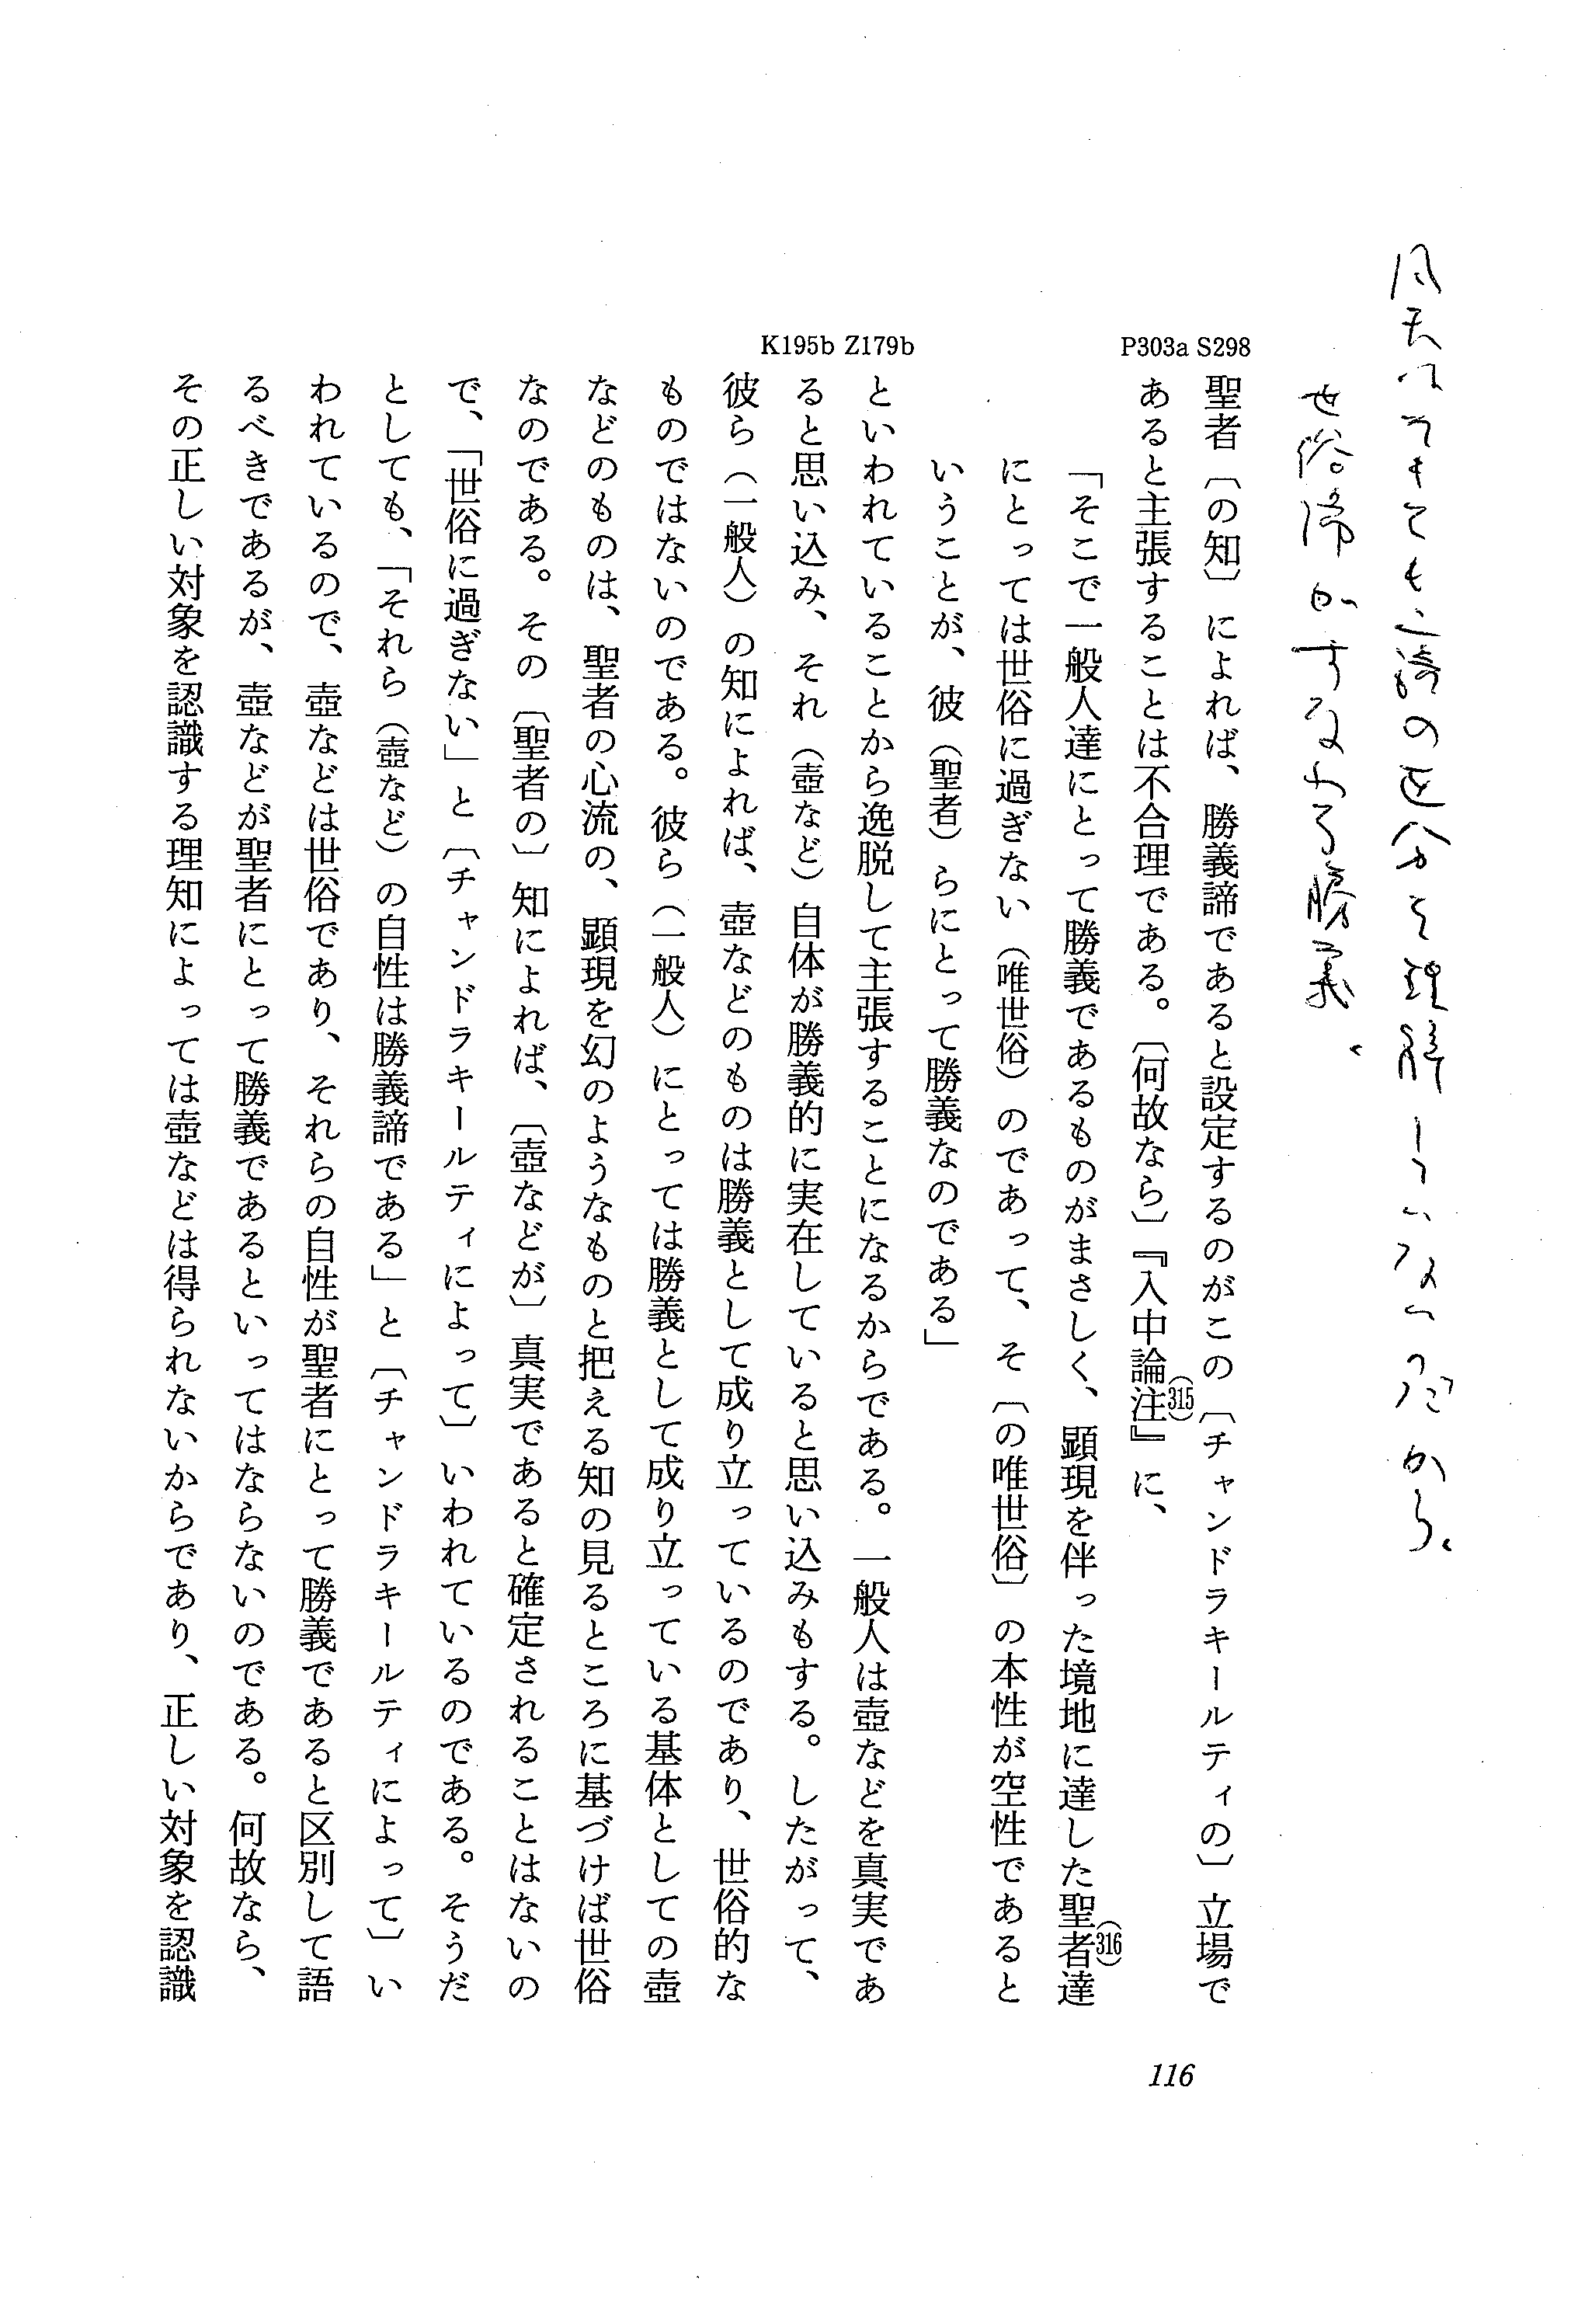 凡夫はそもそも二諦の区分を理解していないのだから。
世俗諦がすなわち勝義。
P303a S298
聖者〔の知〕によれば、勝義諦であると設定するのがこの〔チャンドラキールティの〕立場で
あると主張することは不合理である。〔何故なら〕『入中論注』(315)に、
「そこで一般人達にとって勝義であるものがまさしく、顕現を伴った境地に達した聖者達(316)
にとっては世俗に過ぎない（唯世俗）のであって、そ〔の唯世俗〕の本性が空性であると
いうことが、彼（聖者）らにとって勝義なのである」
K195b Z179b
といわれていることから逸脱して主張することになるからである。一般人は壺などを真実であ
ると思い込み、それ（壺など）自体が勝義的に実在していると思い込みもする。したがって、
彼ら（一般人）の知によれば、壺などのものは勝義として成り立っているのであり、世俗的な
ものではないのである。彼ら（一般人）にとっては勝義として成り立っている基体としての壺
などのものは、聖者の心流の、顕現を幻のようなものと把える知の見るところに基づけば世俗
なのである。その〔聖者の〕知によれば、〔壺などが〕真実であると確定されることはないの
で、「世俗に過ぎない」と〔チャンドラキールティによって〕いわれているのである。そうだ
としても、「それら（壺など）の自性は勝義諦である」と〔チャンドラキールティによって〕い
われているので、壺などは世俗であり、それらの自性が聖者にとって勝義であると区別して語
るべきであるが、壺などが聖者にとって勝義であるといってはならないのである。何故なら、
その正しい対象を認識する理知によっては壺などは得られないからであり、正しい対象を認識
116